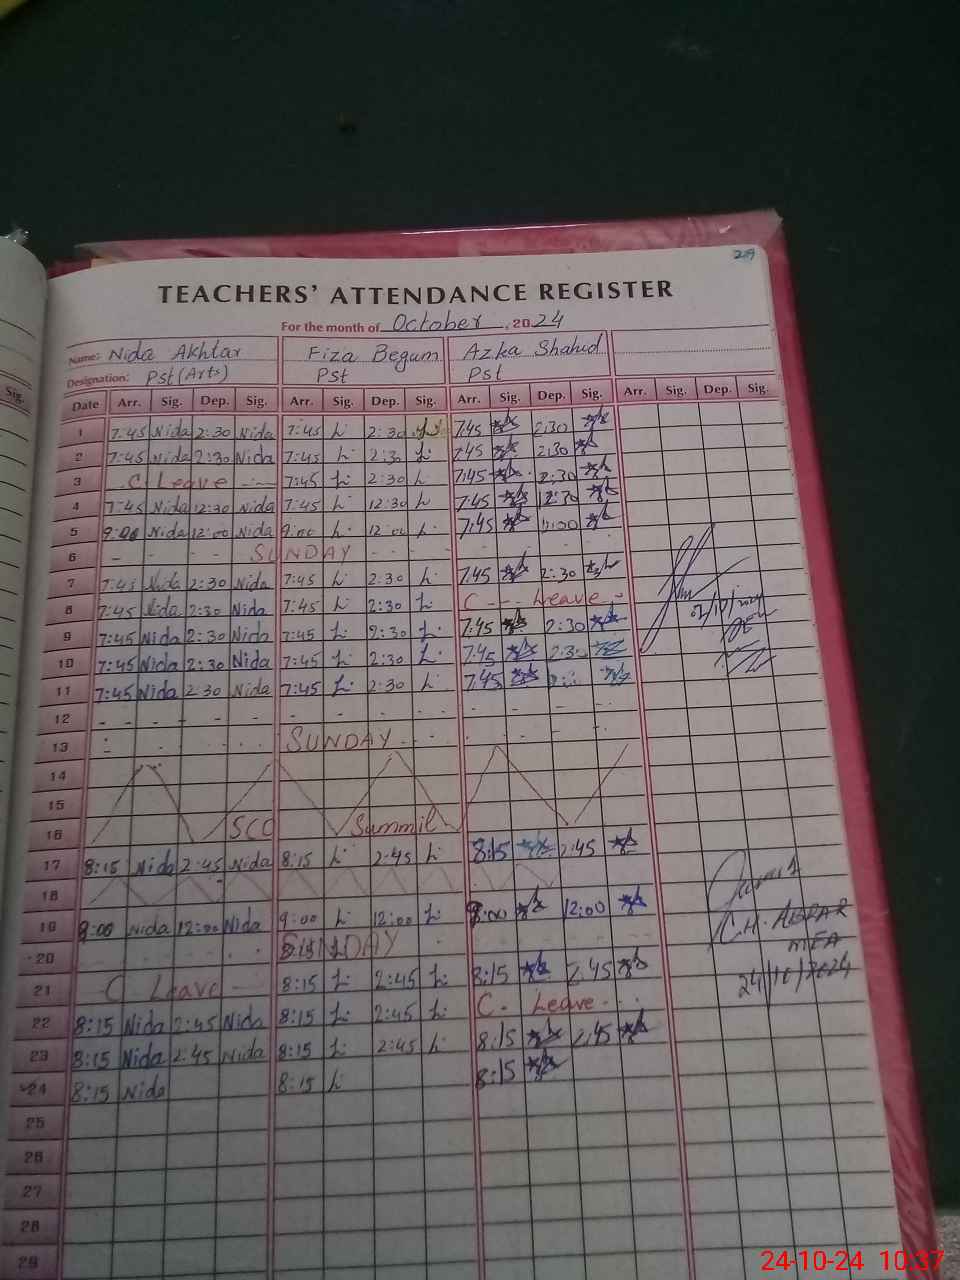 219
TEACHERS' ATTENDANCE REGISTER
For the month of October, 2024
Name: Nida Akhtar Fiza Begum Azka Shahid
Designation: Pst (Arts) Pst Pst
Sig. Date Arr. Sig. Dep. Sig. Arr. Sig. Dep. Sig. Arr. Sig. Dep. Sig. Arr. Sig. Dep. Sig.
1 7:45 Nida 2:30 Nida 7:45 2:30 7:45 2:30
2 7:45 Nida 2:30 Nida 7:45 2:30 7:45 2:30
3 C Leave 7:45 2:30 7:45 2:30
4 7:45 Nida 12:30 Nida 7:45 12:30 7:45 12:30
5 9:00 Nida 12:00 Nida 9:00 12:00 7:45
6 SUNDAY
7 7:45 Nida 2:30 Nida 7:45 2:30 7:45 2:30
8 7:45 Nida 2:30 Nida 7:45 2:30 C Leave
9 7:45 Nida 2:30 Nida 7:45 2:30 7:45 2:30
10 7:45 Nida 2:30 Nida 7:45 2:30 7:45 2:30
11 7:45 Nida 2:30 Nida 7:45 2:30 7:45
12
13 SUNDAY
14
15
16 SCO Summit
17 8:15 Nida 2:45 Nida 8:15 2:45 8:15 2:45
18
19 9:00 Nida 12:00 Nida 9:00 12:00 9:00 12:00
CH. ABRAR
20 SUNDAY
MEA
21 C Leave 8:15 2:45 8:15 2:45
24/10/2024
22 8:15 Nida 2:45 Nida 8:15 2:45 C. Leave
23 8:15 Nida 2:45 Nida 8:15 2:45 8:15 2:45
24 8:15 Nida 8:15 8:15
25
26
27
28
29
24-10-24 10:37